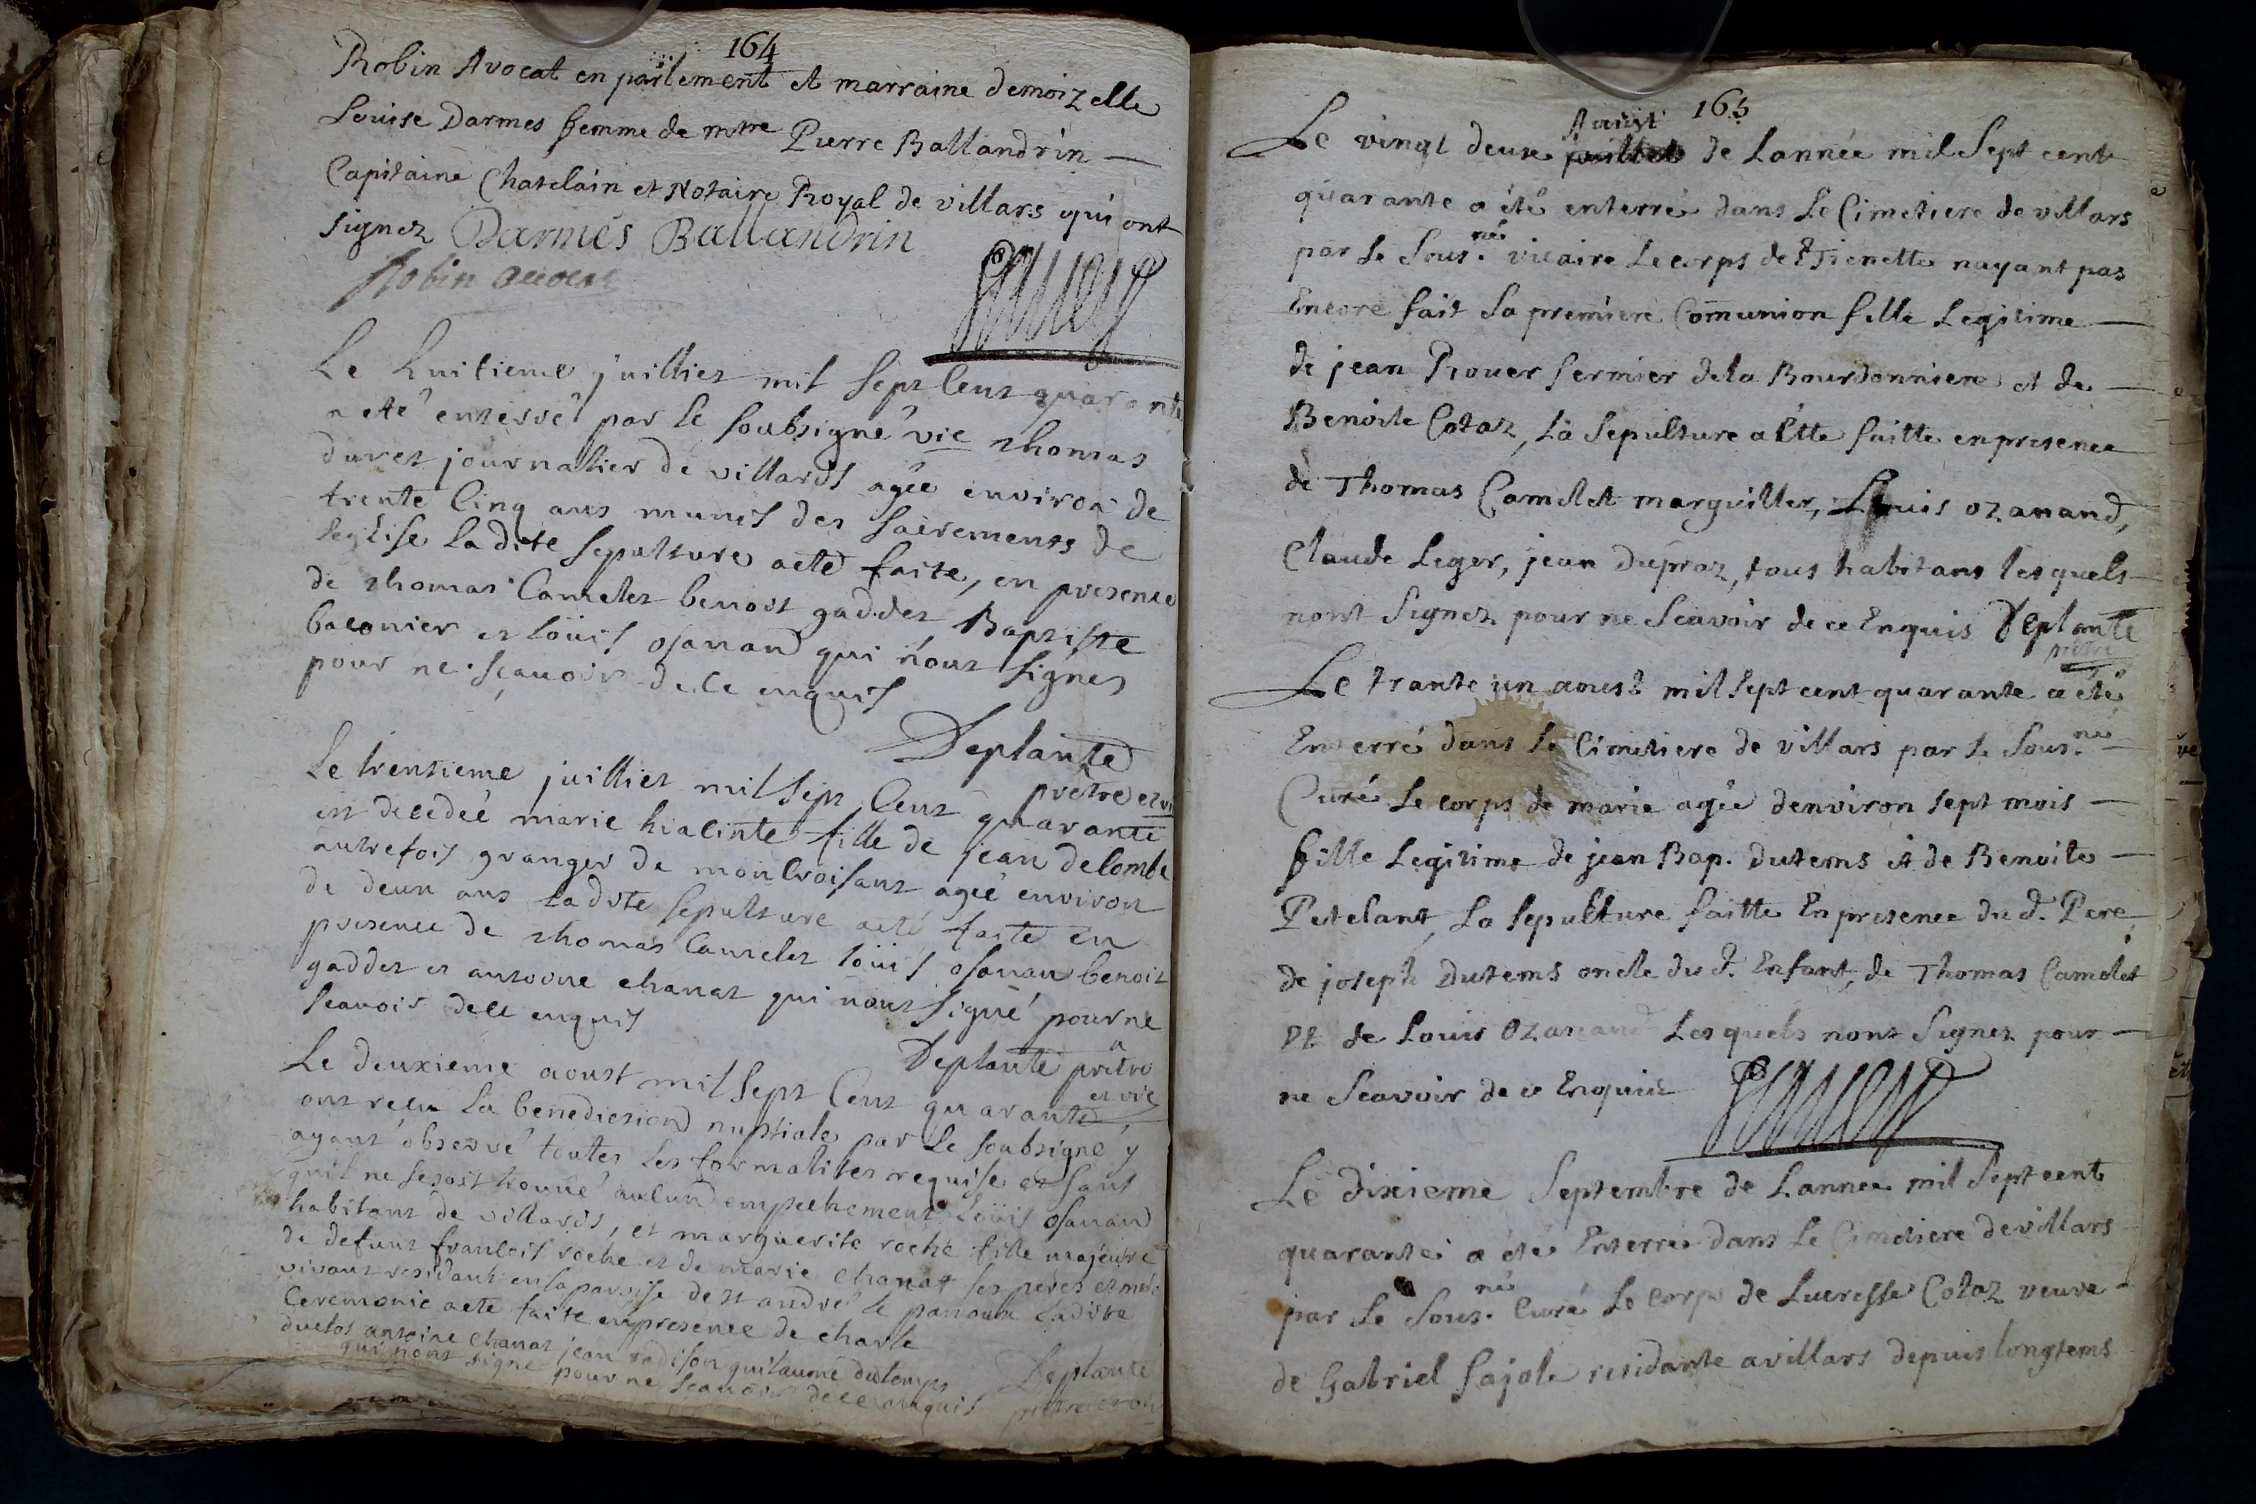 164
Robin Avocat en parlement et marraine demoizelle
Louise Darmes femme de mtre Pierre Ballandrin
Capitaine Chatelain et Notaire Royal de villars qui ont
signez Darmes Ballandrin
Robin avocat
Le huitieme juilliet mil sept Cent quarante
a eté enterré par le soubsigné vic thomas
duret journalier de villards agée environ de
trente Cinq ans munis des sacrements de
leglise ladite sepulture aeté faite, en presence
de thomas Camelet benoit gaddet Baptiste
baconier et loüis osanan qui n'ont signés
pour ne sçauoir de ce enquis
Deplante
prêtre et vi
Le trentieme juilliet mil sept Cent quarante
est decedeé marie hiacinte fille de jean delombe
autrefois granger de montroisant ageé environ
de deux ans ladite sepulture aeté faite en
presence de thomas Camelet loüis osanan benoit
gaddet et antoine chanat qui nont signé pour ne
scauoir dece enquis
Deplante prêtre
et vic
Le deuxieme aoust mil sept Cent quarante
ont recu la benediction nuptiale par le soubsigné y
ayant observé toutes les formalites requise et sant
quil ne sesoit trouué aucund empechement loüis osanan
habitant de villards, et marguerite roche fille majeure
de defunt francois roche et de marie chanat ses peres et mere
vivant residant en laparoisse de st andré le panoux ladite
Ceremonie aeté faite enpresence de charle
duclos antoine chanat jean radison guilaume dutemps
qui nont signé pour ne scauoir dece enquis
Deplante
165
Aoust
Le vingt deux juillet de Lannée mil Sept cent
quarante a été enterré dans Le Cimetiere de villars
par Le Sous.né vicaire Le corps de Etienette nayant pas
Encore fait Sa premiere Comunion fille Legitime
de jean Rouer fermier dela Bourdonniere et de
Benoite Cotaz, La Sepulture a Ette faitte enpresence
de Thomas Camelet marguiller, Louis ozanand,
Claude Leger, jean dupraz, tous habitans les quels
nont Signez pour ne Scavoir de ce Enquis Deplante
prêtre
Le trante un aoust mil sept cent quarante a été
Enterré dans Le Cimetiere de villars par Le Sous.né
Curé Le corps de marie agée denviron sept mois
fille Legitime de jean Bap. Dutems et de Benoite
Petelant, La Sepulture faitte En presence du d. Pere
de joseph Dutems oncle du d. Enfant, de Thomas Camelet
et de Louis Ozanand Les quels nont Signez pour
ne Scavoir de ce Enquis
Le dixieme Septembre de Lannee mil Sept cent
quarante a été Enterrée dans Le Cimetiere de villars
par Le Sous.né Curé Le Corps de Lucresse Cotaz veuve
de Gabriel Sajole residante avillars depuis longtems